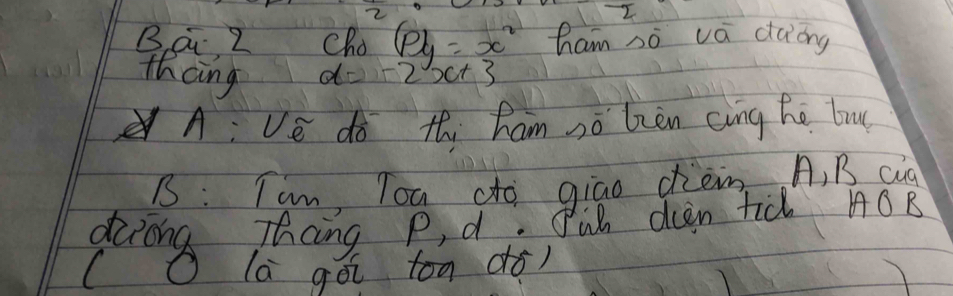 Bài 2 Cho (P)y = x² hàm số và đường
thẳng d = -2x+3
A : Vẽ đồ thị hàm số trên cùng hệ trục
B : Tìm Toạ độ giao điểm A,B của
đường Thẳng P, d . Tính diện tích AOB
( O là gốc toạ độ)